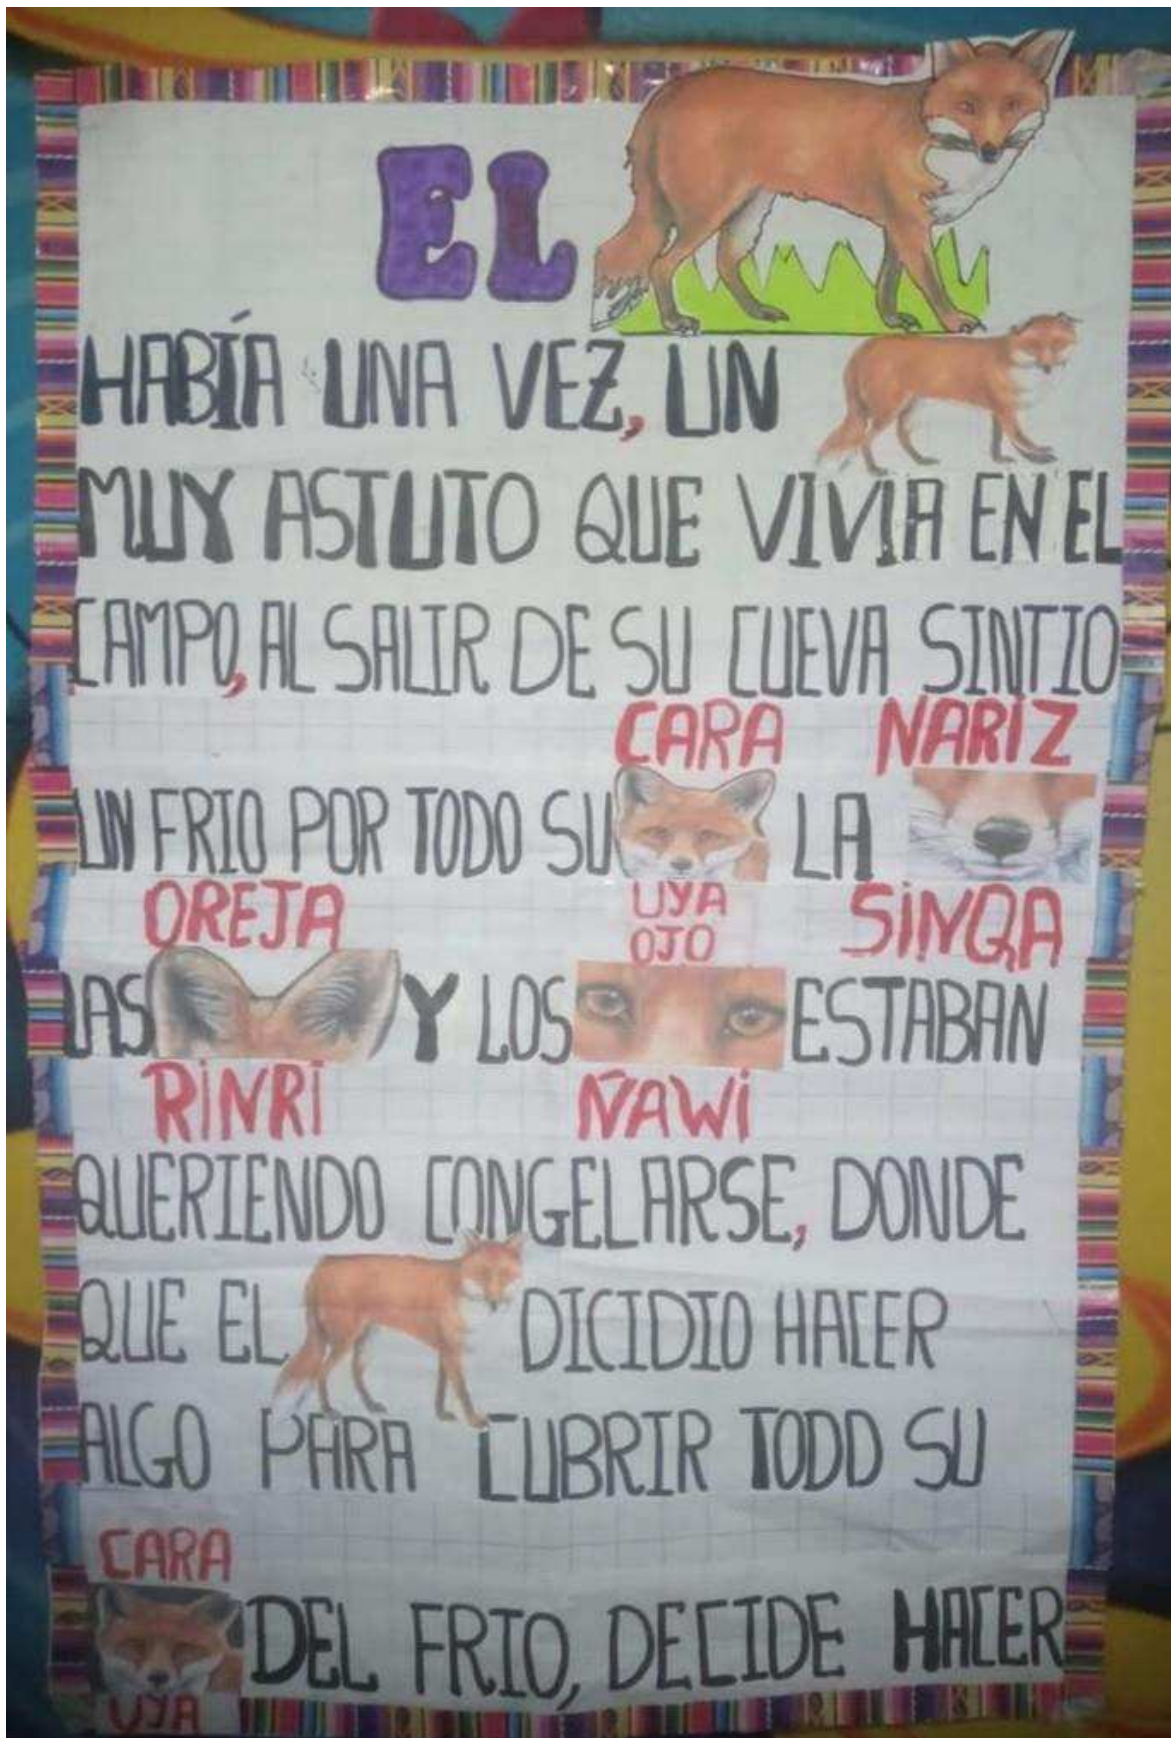 EL
HABÍA UNA VEZ, UN
MUY ASTUTO QUE VIVIA EN EL
CAMPO, AL SALIR DE SU CUEVA SINTIO
CARA NARIZ
UN FRIO POR TODO SU LA
OREJA UYA SINQA
OJO
LAS Y LOS ESTABAN
RINRI ÑAWI
QUERIENDO CONGELARSE, DONDE
QUE EL DICIDIO HACER
ALGO PARA CUBRIR TODO SU
CARA
DEL FRIO, DECIDE HACER
UYA